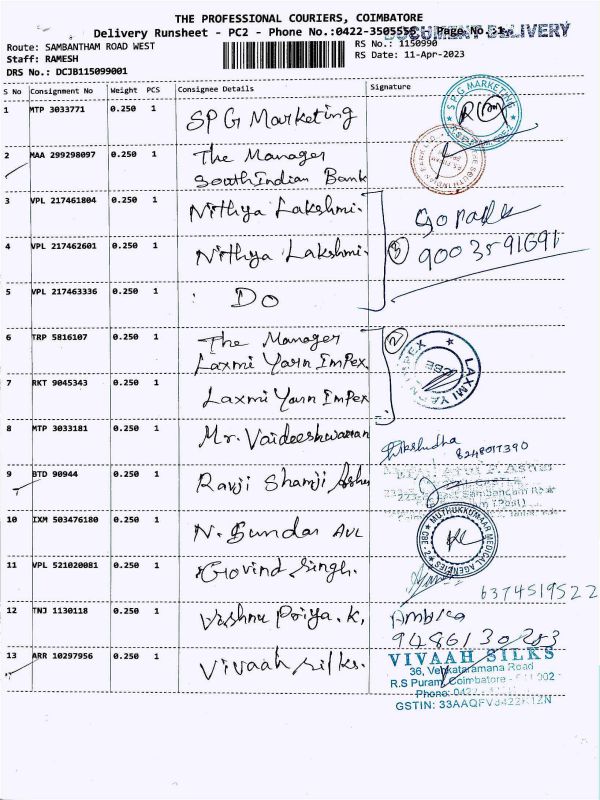 THE PROFESSIONAL COURIERS, COIMBATORE
Delivery Runsheet - PC2 - Phone No.:0422-3505555 Page No.:1
DOCUMENT DELIVERY
Route: SAMBANTHAM ROAD WEST RS No.: 1150990
Staff: RAMESH RS Date: 11-Apr-2023
DRS No.: DCJB115099001
S No Consignment No Weight PCS Consignee Details Signature
1 MTP 3033771 0.250 1 SPG Marketing
SPG MARKETING
2 MAA 299298097 0.250 1 The Manager
South Indian Bank
3 VPL 217461804 0.250 1 Nithya Lakshmi.
4 VPL 217462601 0.250 1 Nithya Lakshmi. 3 9003591691
5 VPL 217463336 0.250 1 Do
6 TRP 5816107 0.250 1 The Manager 2
Laxmi Yarn Impex.
LAXMI YARN IMPEX
CBE
7 RKT 9045343 0.250 1 Laxmi Yarn Impex
8 MTP 3033181 0.250 1 Mr. Vaideeshwaran
8248017390
9 BTD 90944 0.250 1 Ravji Shamji
10 IXM 503476180 0.250 1 N. Sundar AVL
MUTHUKKUMAAR MEDICAL AGENCIES
11 VPL 521020081 0.250 1 Govind Singh. 6374519522
12 TNJ 1130118 0.250 1 Vishnu Priya.K, Ambica
9486130253
13 ARR 10297956 0.250 1 Vivaah Silks.
VIVAAH SILKS
36, Venkataramana Road
R.S Puram, Coimbatore
Phone: 0422
GSTIN: